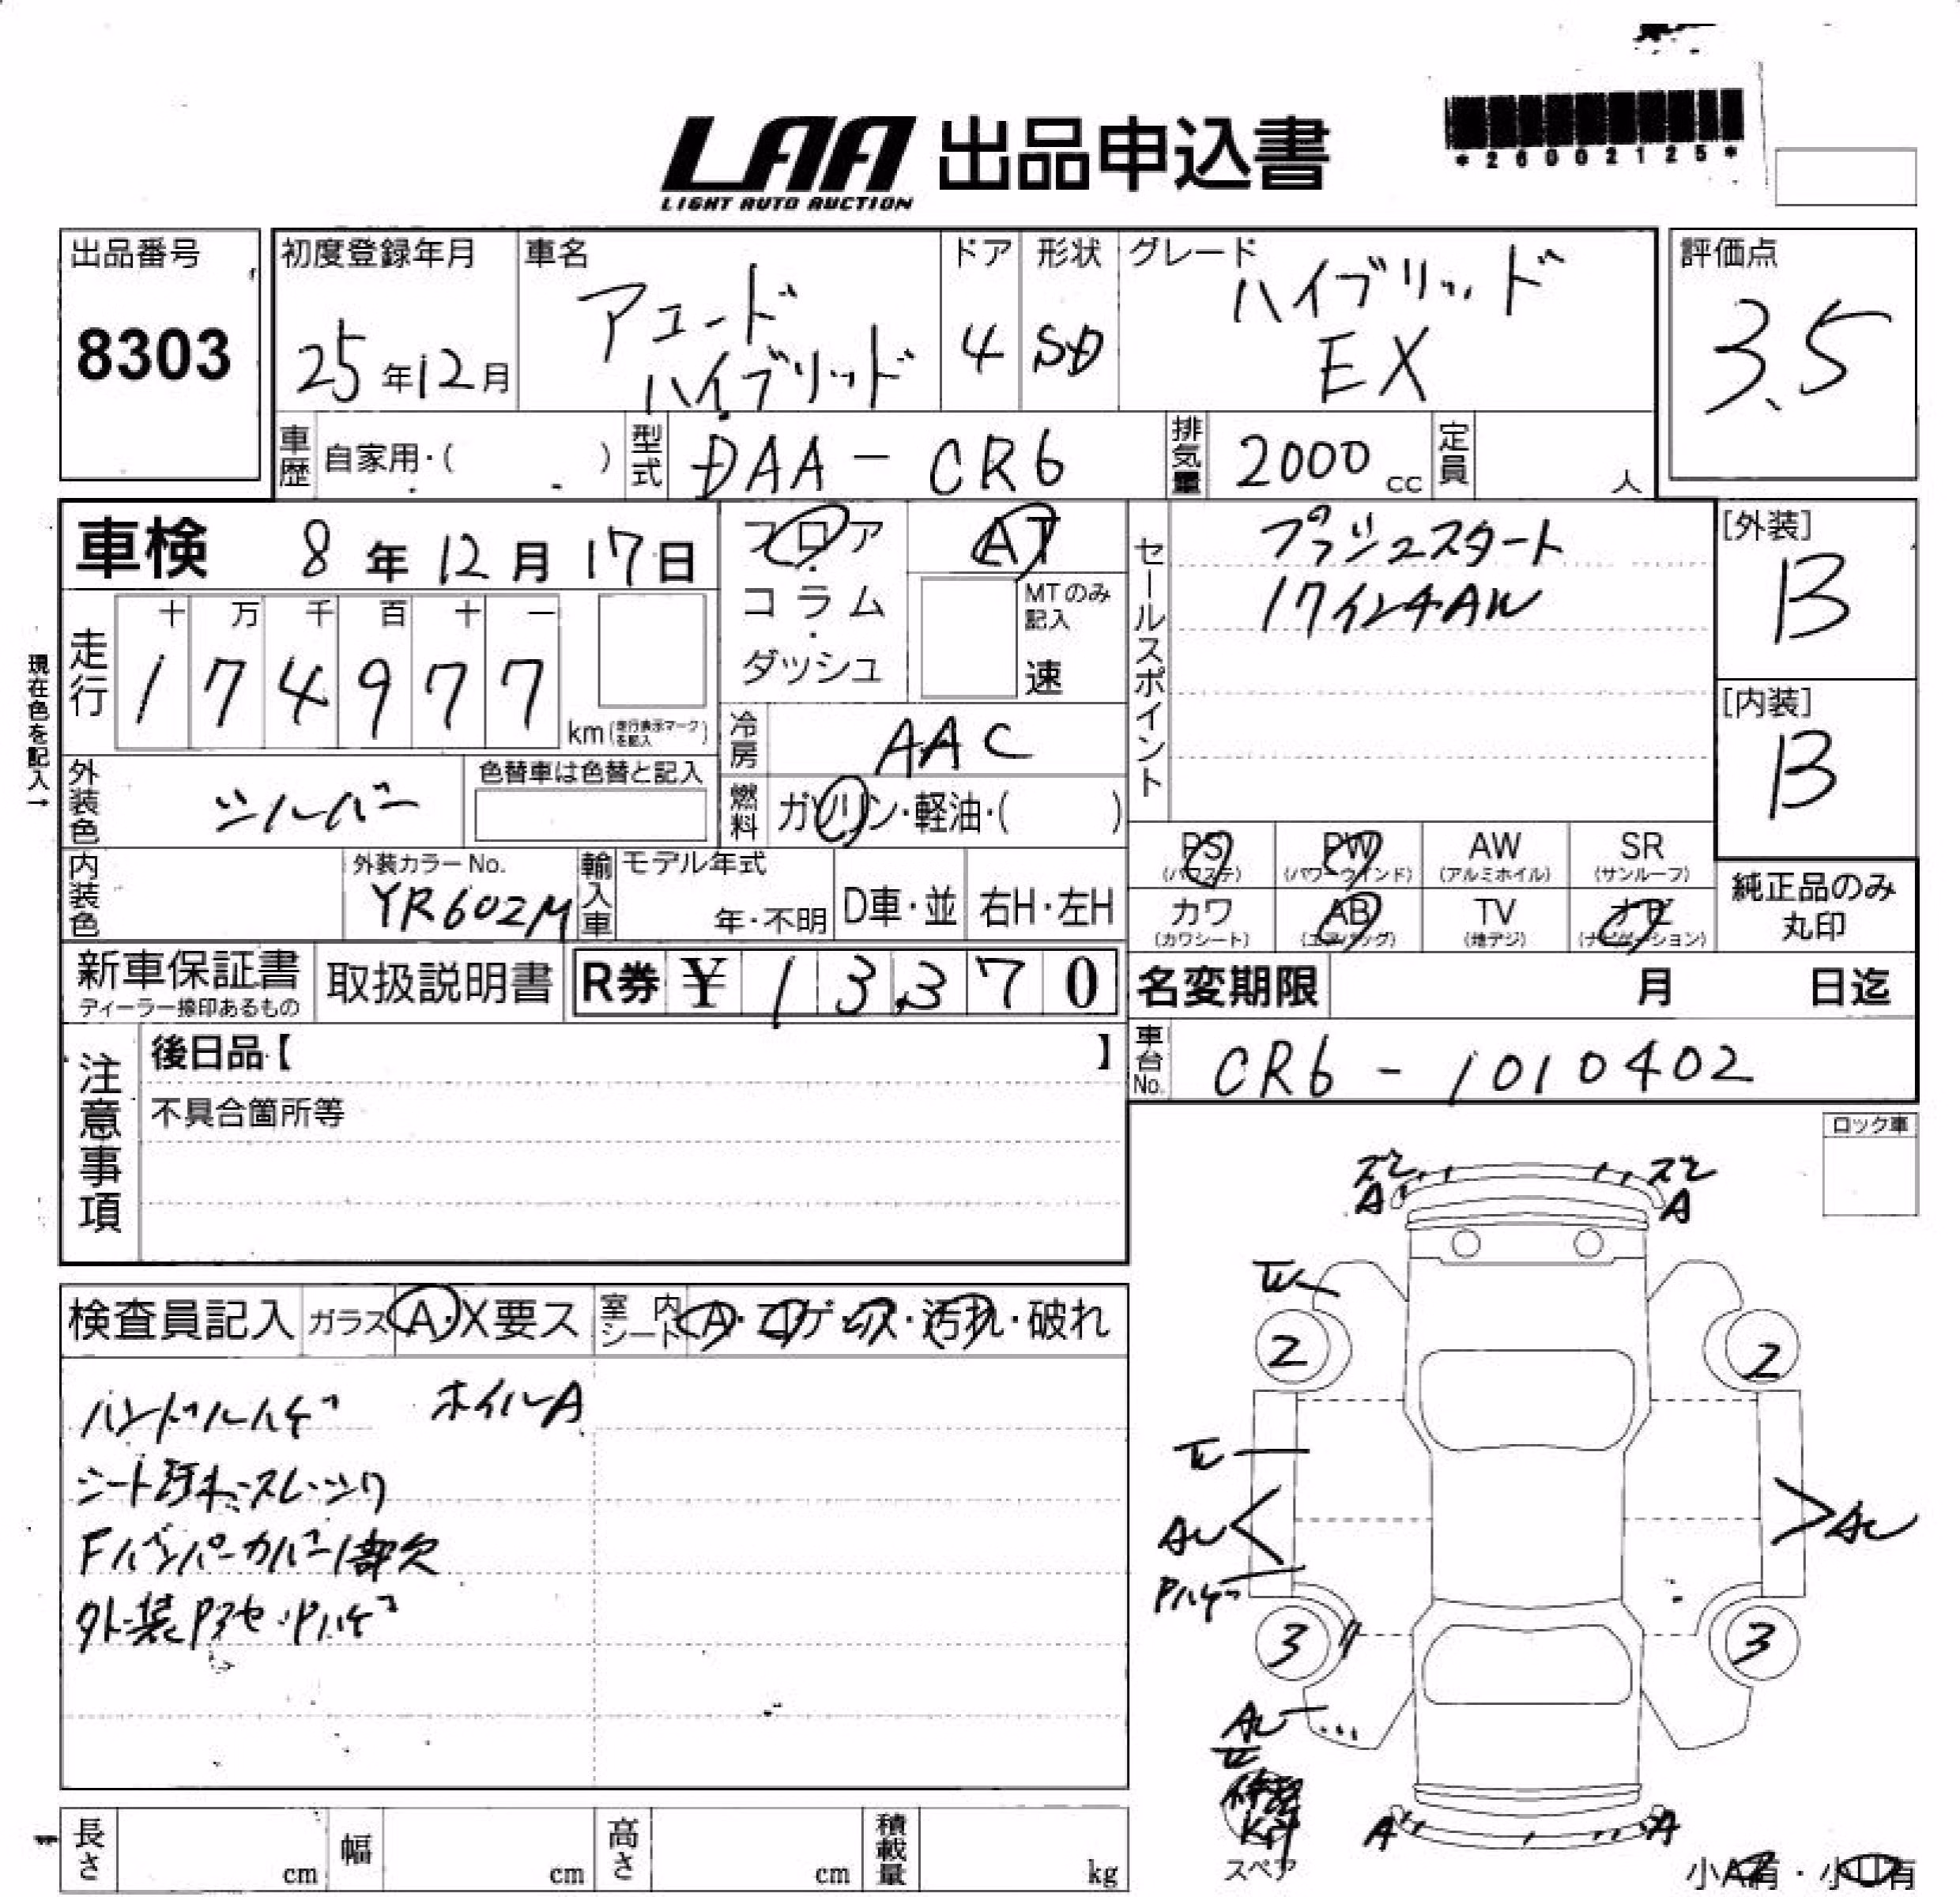 *26002125*
LAA 出品申込書
LIGHT AUTO AUCTION
出品番号
8303
初度登録年月
25年12月
車名
アコード
ハイブリッド
ドア
4
形状
SD
グレード
ハイブリッド
EX
評価点
3.5
車歴 自家用・( )
型式 DAA-CR6
排気量 2000cc
定員 人
車検 8年12月17日
フロア・コラム・ダッシュ
AT
MTのみ記入
速
現在色を記入→
走行
十 万 千 百 十 一
1 7 4 9 7 7
km(走行表示マークを記入)
冷房 AAC
外装色 シルバー
色替車は色替と記入
燃料 ガソリン・軽油・( )
セールスポイント
プッシュスタート
17インチAW
[外装]
B
[内装]
B
PS (パワステ)
PW (パワーウインド)
AW (アルミホイル)
SR (サンルーフ)
カワ (カワシート)
AB (エアバッグ)
TV (地デジ)
ナビ (ナビゲーション)
純正品のみ
丸印
内装色
外装カラーNo.
YR602M
輸入車
モデル年式
年・不明
D車・並
右H・左H
新車保証書
ディーラー捺印あるもの
取扱説明書
R券 ¥ 13,370
名変期限 月 日迄
車台No. CR6-1010402
注意事項
後日品【 】
不具合箇所等
ロック車
検査員記入
ガラス A・X要ス
室内シート A・コゲ・ス・汚れ・破れ
ハンドルハゲ ホイルA
シート汚れ・スレ・シワ
Fバンパーカバー1部欠
外装Pスセ・Pハゲ
ズレ
A
ズレ
A
2
2
AU
AU
Pハゲ
3
3
AU
A
A
スペア
小A有・小U有
長さ cm
幅 cm
高さ cm
積載量 kg